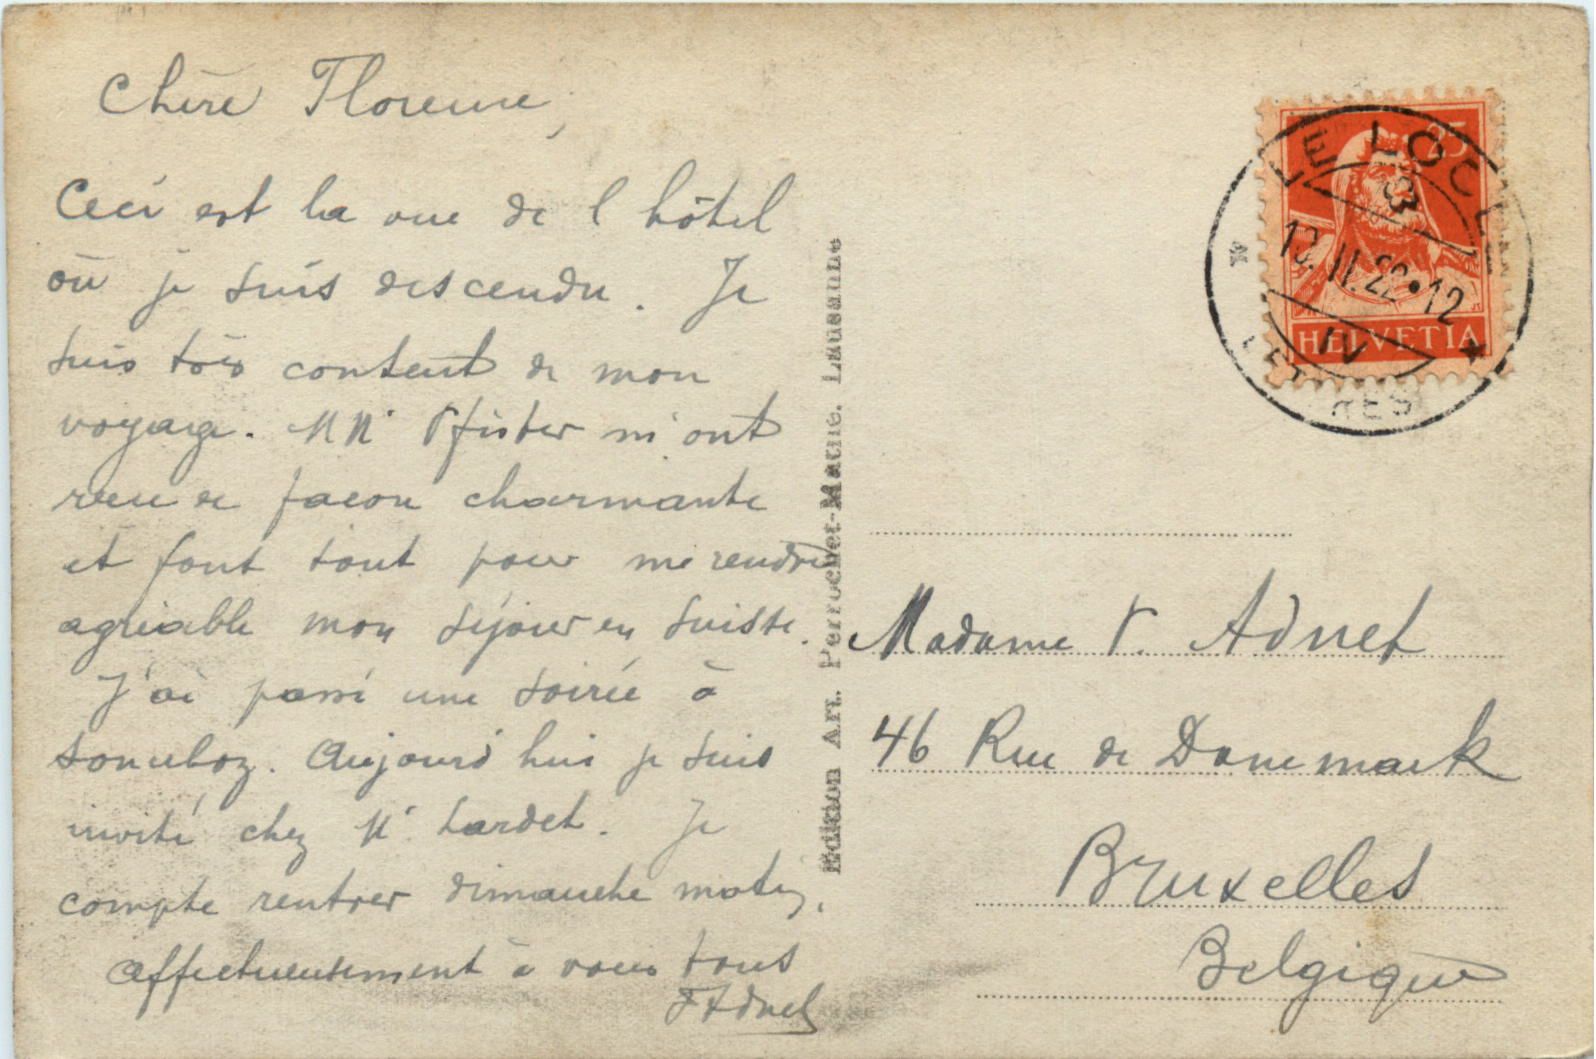 Chère Florence,
Ceci est la vue de l'hôtel
où je suis descendu. Je
suis très content de mon
voyage. MM Pfister m'ont
reçu de façon charmante
et font tout pour me rendre
agréable mon séjour en Suisse.
J'ai passé une soirée à
Sonceboz. Aujourd'hui je suis
invité chez Mr Lardet. Je
compte rentrer dimanche matin.
Affectueusement à vous tous
FAdnet
Edition Art. Perrochet-Matile. Lausanne
25
HELVETIA
LE LOCLE
13. II. 22 • 12
IV
LETTRES
Madame V. Adnet
46 Rue de Danemark
Bruxelles
Belgique